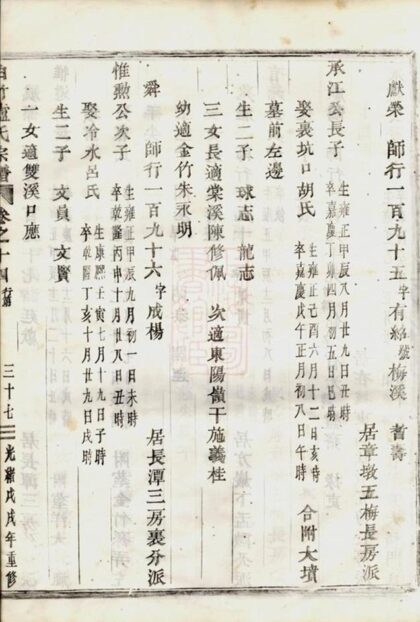 獻榮 師行一百九十五字有紹號梅溪 耆壽
居章墩五梅長房派
承江公長子 生雍正甲辰八月廿九日丑時
卒嘉慶丁卯四月初五日巳時
娶裏坑口胡氏 生雍正己酉六月十二日亥時
卒嘉慶戊午正月初八日午時 合附大墳
墓前左邊
生二子 球志 龍志
三女長適棠溪陳修佩 次適東陽嶺干施義桂
幼適金竹朱永明
舜 師行一百九十六字成楊
居長潭三房裏分派
惟勲公次子 生雍正甲辰九月初一日未時
卒乾隆丙申十月廿八日丑時
娶冷水呂氏 生康熙壬寅七月十九日子時
卒乾隆丁亥十月廿九日戌時
生二子 文員 文賢
一女適雙溪口應
氏宗譜 卷之十四行第 三十七 光緒戊戌年重修